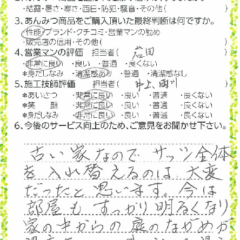 ・結露・暑さ・寒さ・西日・防犯・騒音・その他(
3.あんみつ商品をご購入頂いた最終判断は何ですか。
・性能・ブランド・クチコミ・営業マンの勧め
4.営業マンの評価 担当者(
・非常に良い ・良い ・普通 ・良くない
*身だしなみ ・清潔感あり ・普通 ・清潔感なし
5.施工技師評価 担当者(
*あいさつ ・非常に良い ・良い ・普通 ・良くない
*笑顔 ・非常に良い ・良い ・普通 ・良くない
*身だしなみ ・非常に良い ・良い ・普通 ・良くない
6.今後のサービス向上のため、ご意見をお聞かせ下さい。
古い家なのでサッシ全体
を入れ替えるのは大変
だったと思います。今は
部屋もすっかり明るくなり
家の中からの庭のながめが